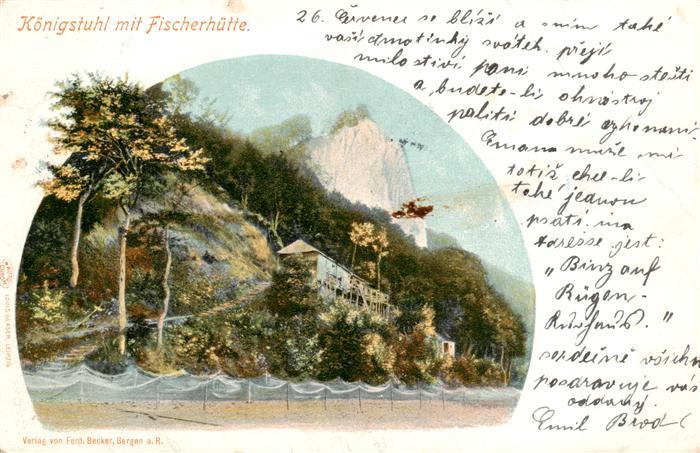 Königstuhl mit Fischerhütte.
26. Červenec se blíží a sním také
vaší dmotinky svátek. přeji
milostiví paní mnoho štěstí
a budete-li ohňostroj
paliti dobré
mi
totiž chce-li
také jednou
psáti. má
adresse jest:
"Binz auf
Rügen-
Kurhaus."
srdečně všichn
pozdravuje vás
oddaný
Emil Brod
LOUIS GLASER, LEIPZIG
Verlag von Ferd. Becker, Bergen a. R.